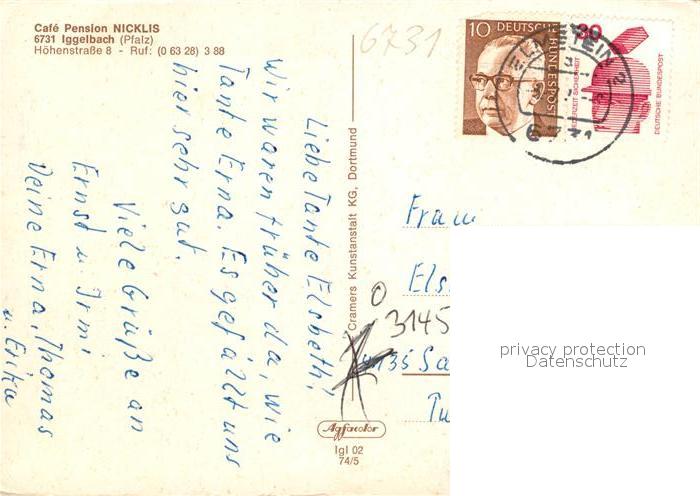 Café Pension NICKLIS
6731 Iggelbach (Pfalz)
Höhenstraße 8 - Ruf: (0 63 28) 3 88
6731
Liebe Tante Elsbeth!
Wir waren früher da, wie
Tante Erna. Es gefällt uns
hier sehr gut.
Viele Grüße an
Ernst u. Irmi
Deine Erna, Thomas
u. Erika
Cramers Kunstanstalt KG, Dortmund
10
DEUTSCHE BUNDESPOST
30
JEDERZEIT SICHERHEIT
DEUTSCHE BUNDESPOST
ELMSTEIN 2
6731
Frau
Els
0
3145
4435 Sa
Agfacolor
Igl 02
74/5
privacy protection
Datenschutz